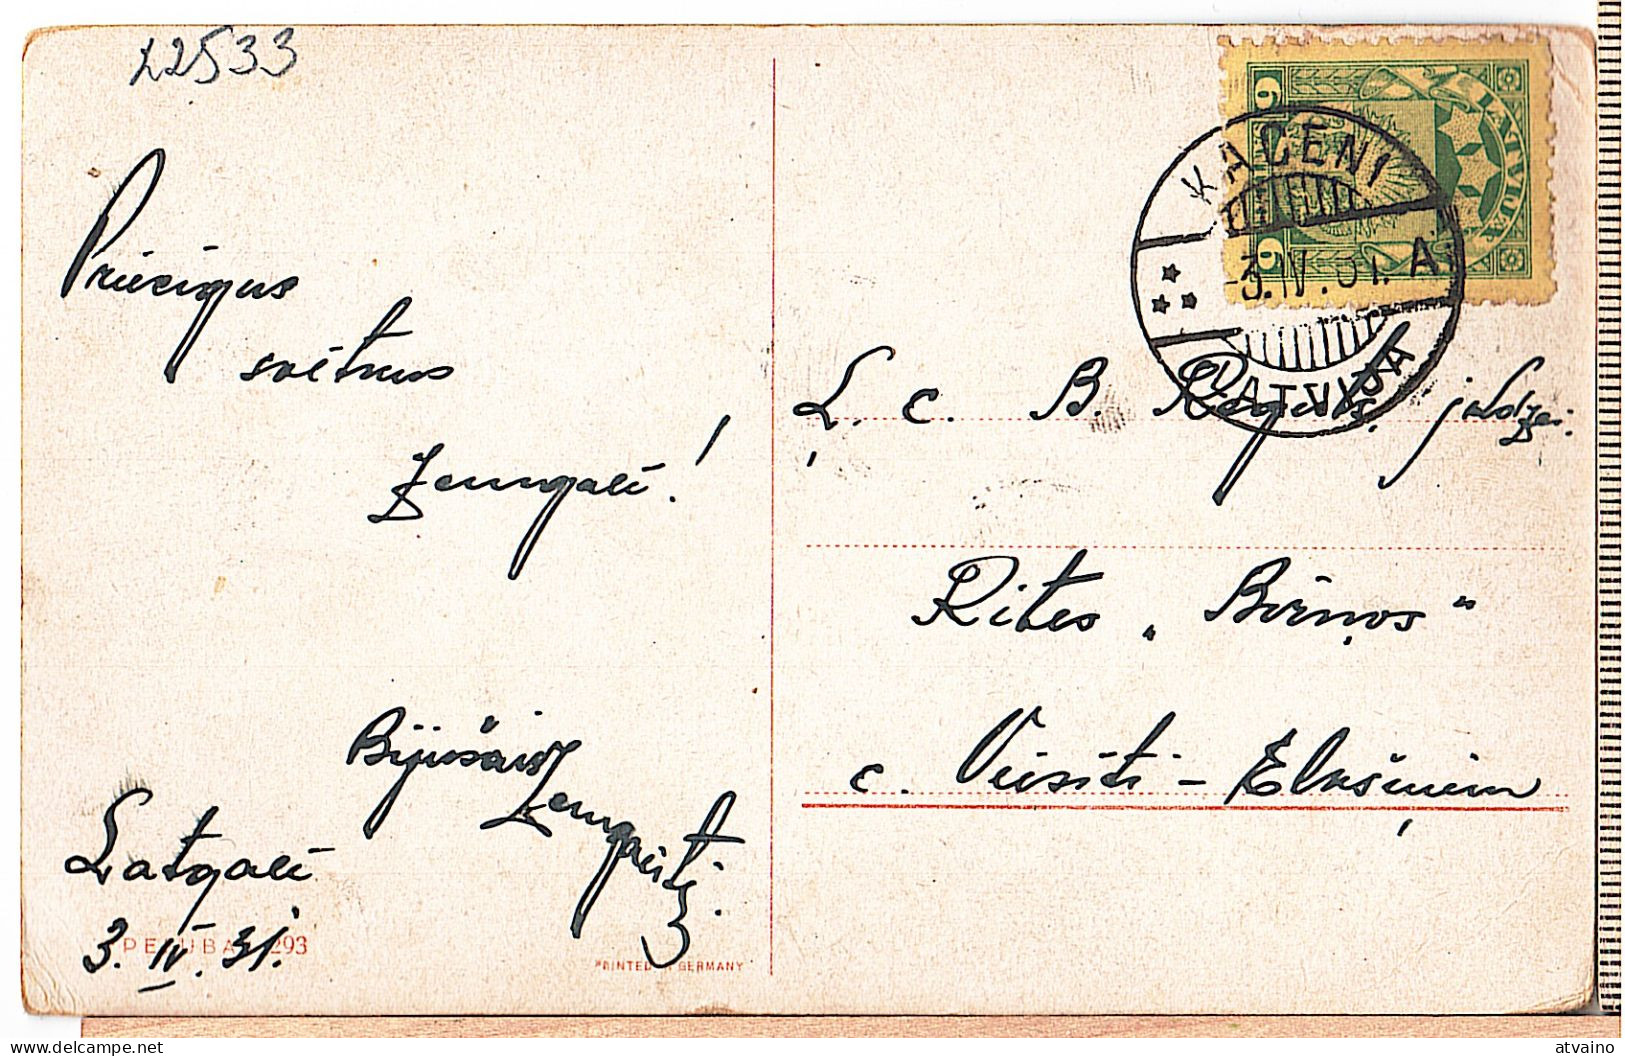 22533
Priecigus
svētkus
Zemgalē!
Bijušais
Zemgalietis.
Latgalē
3.IV.31.
PE UBA 293
PRINTED IN GERMANY
6
6
LATVIJA
KAČENI
-3.IV.31. A
LATVIJA
Ļ. c. B. kdzei.
Rites „Birņos"
c. Viesīti - Elkšņiem
delcampe.net
atvaino